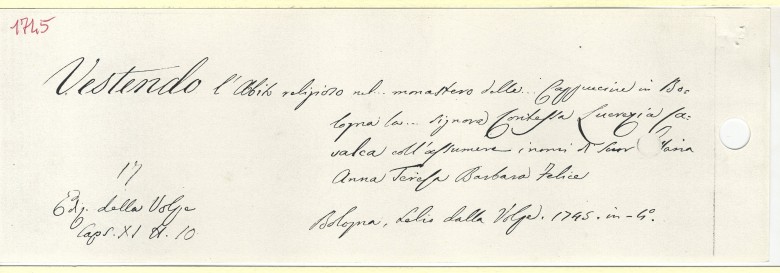 1745
Vestendo l'Abito religioso nel... monastero delle... Cappuccine in Bo-
logna la... signora Contessa Lucrezia Fa-
valca coll'assumere i nomi di Suor Maria
Anna Teresa Barbara Felice
17
Ediz. della Volpe
Caps. XI N. 10
Bologna, Lelio dalla Volpe. 1745. in-4°.